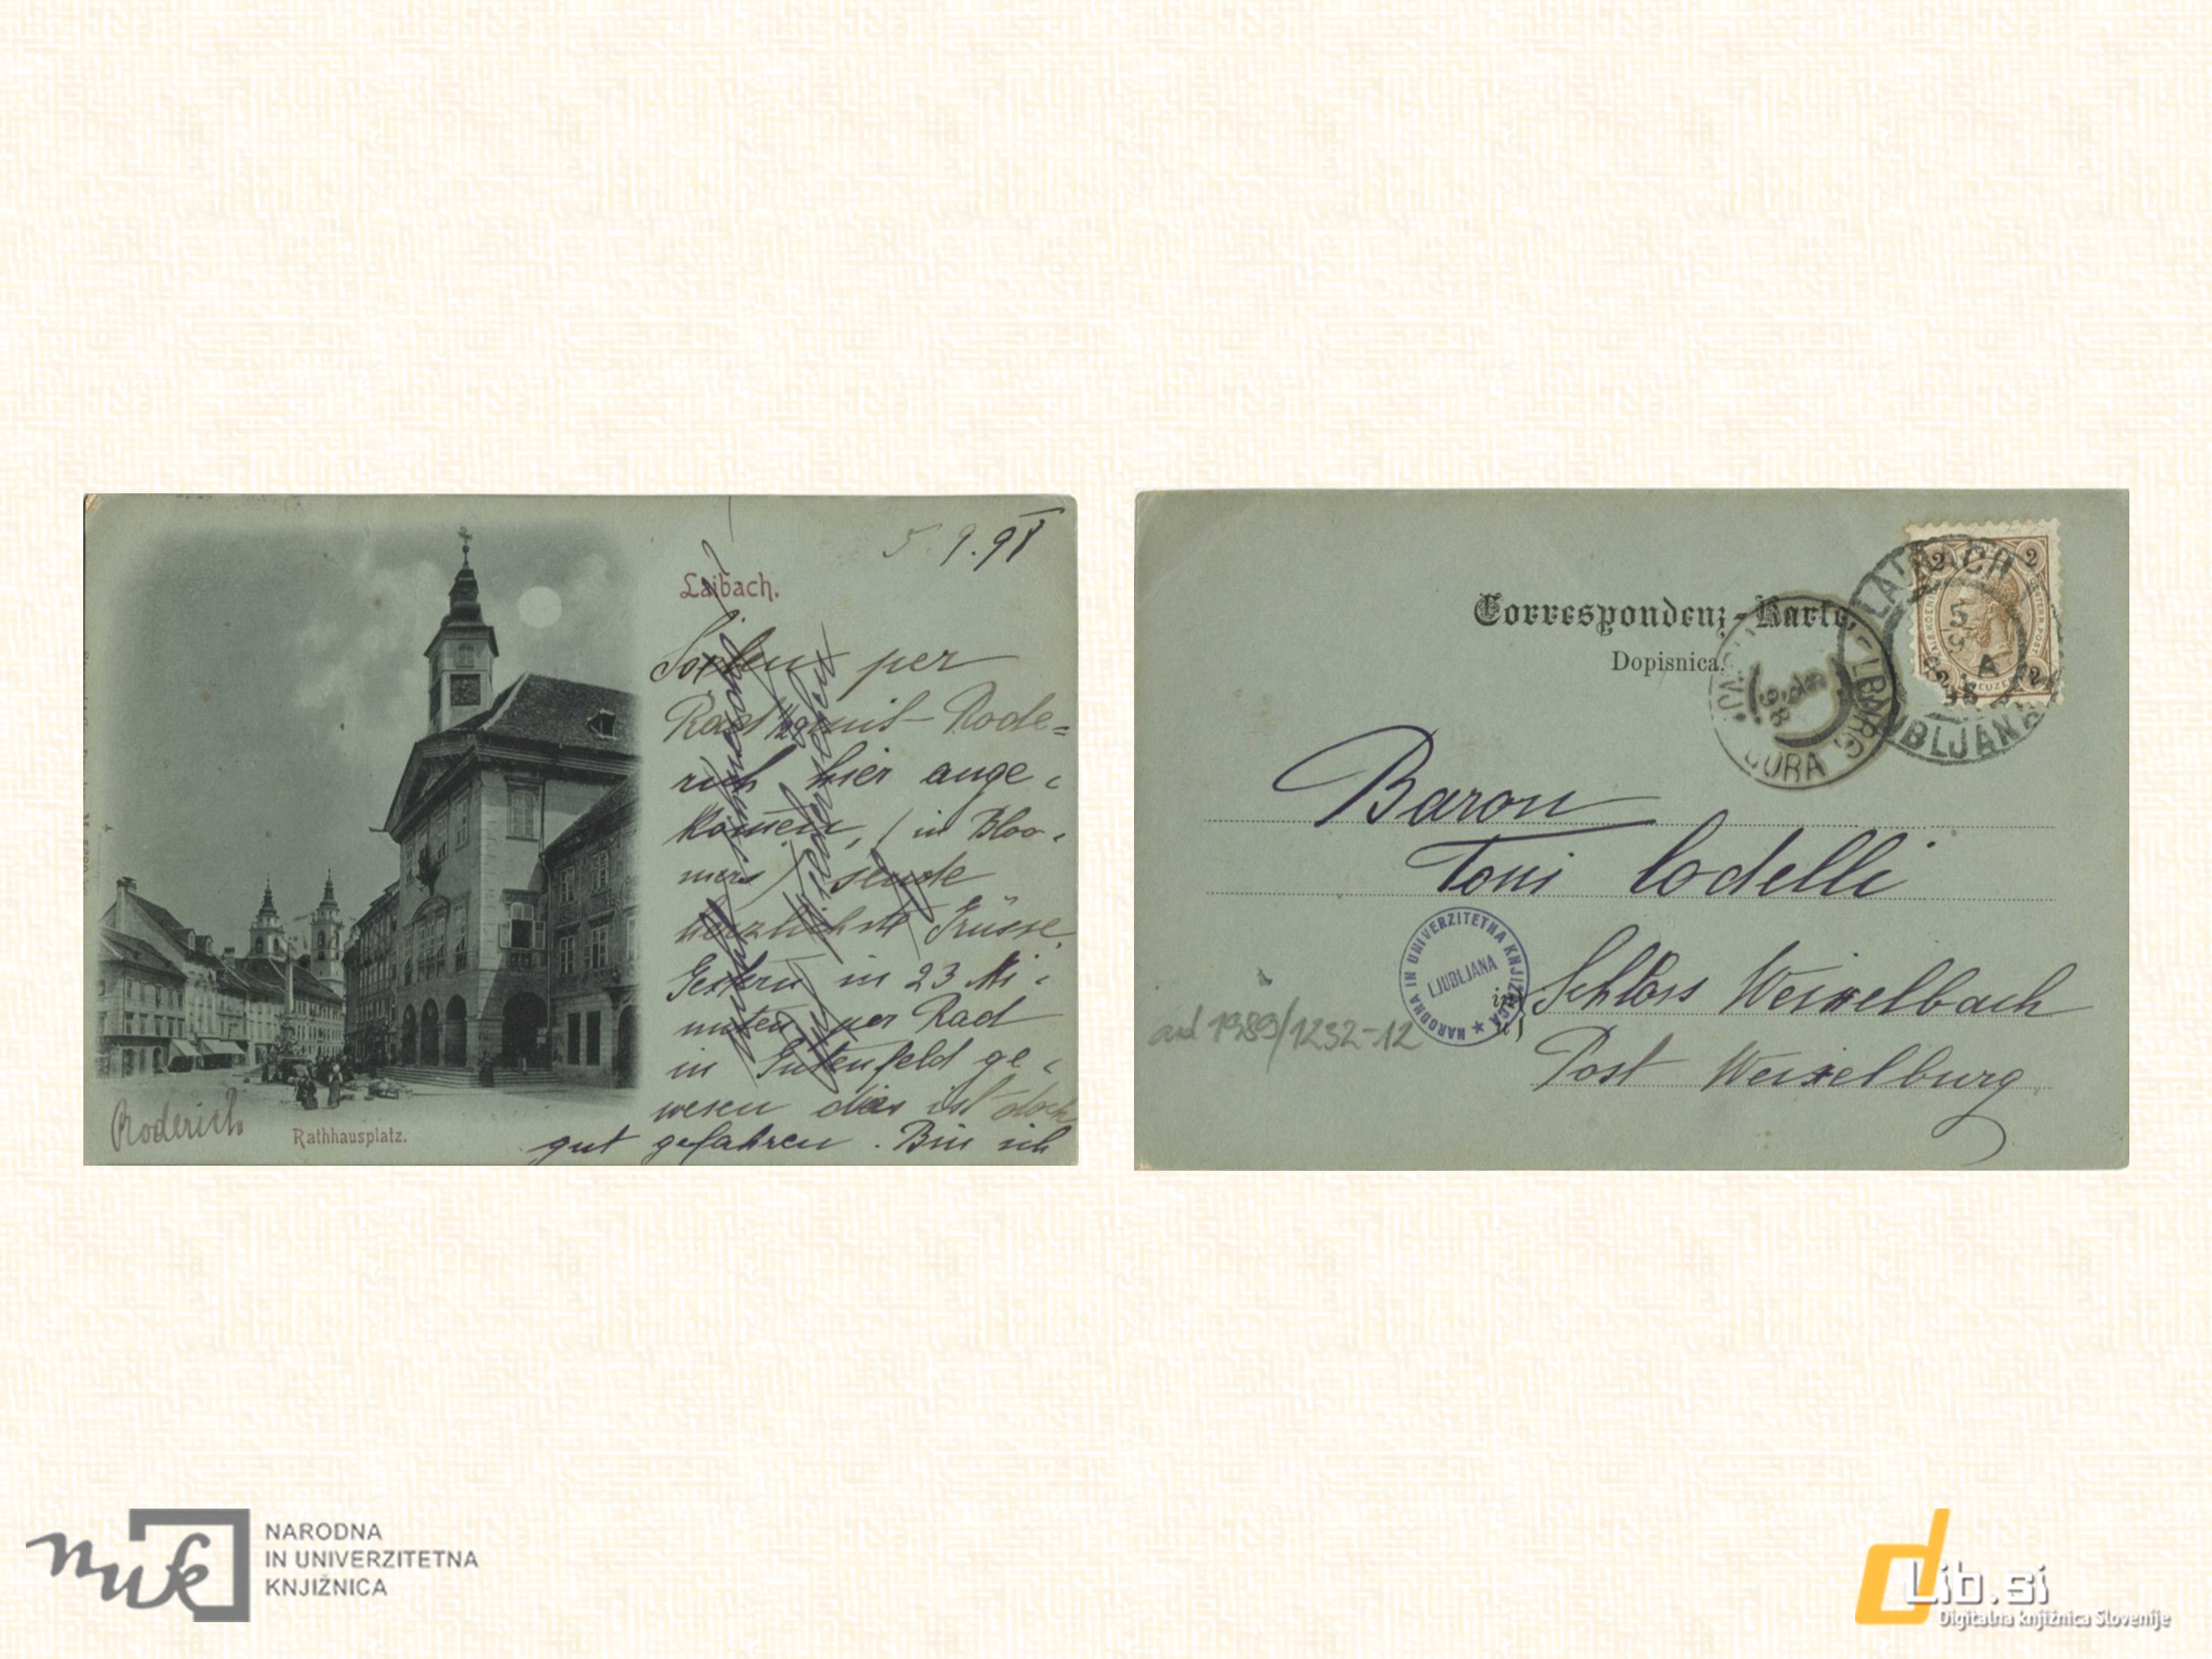 5.9.98
Laibach.
Soeben per
Rad mit Rode=
rich hier ange-
kom̅en, (in Bloo-
mers) sende
herzlichste Grüsse.
Gestern in 23 Mi-
nuten per Rad
in Gutenfeld ge-
wesen das ist doch
gut gefahren. Bin ich
Roderich
Rathhausplatz.
Correspondenz-Karte.
Dopisnica.
LAIBACH
5
9
A
98
LJUBLJANA
2
2
2
2
98
GORA
Baron
Toni Codelli
in
Schloss Weixelbach
Post Weixelburg
NARODNA IN UNIVERZITETNA KNJIŽNICA
LJUBLJANA
ad 1989/1232-12
nuk
NARODNA
IN UNIVERZITETNA
KNJIŽNICA
dLib.si
Digitalna knjižnica Slovenije